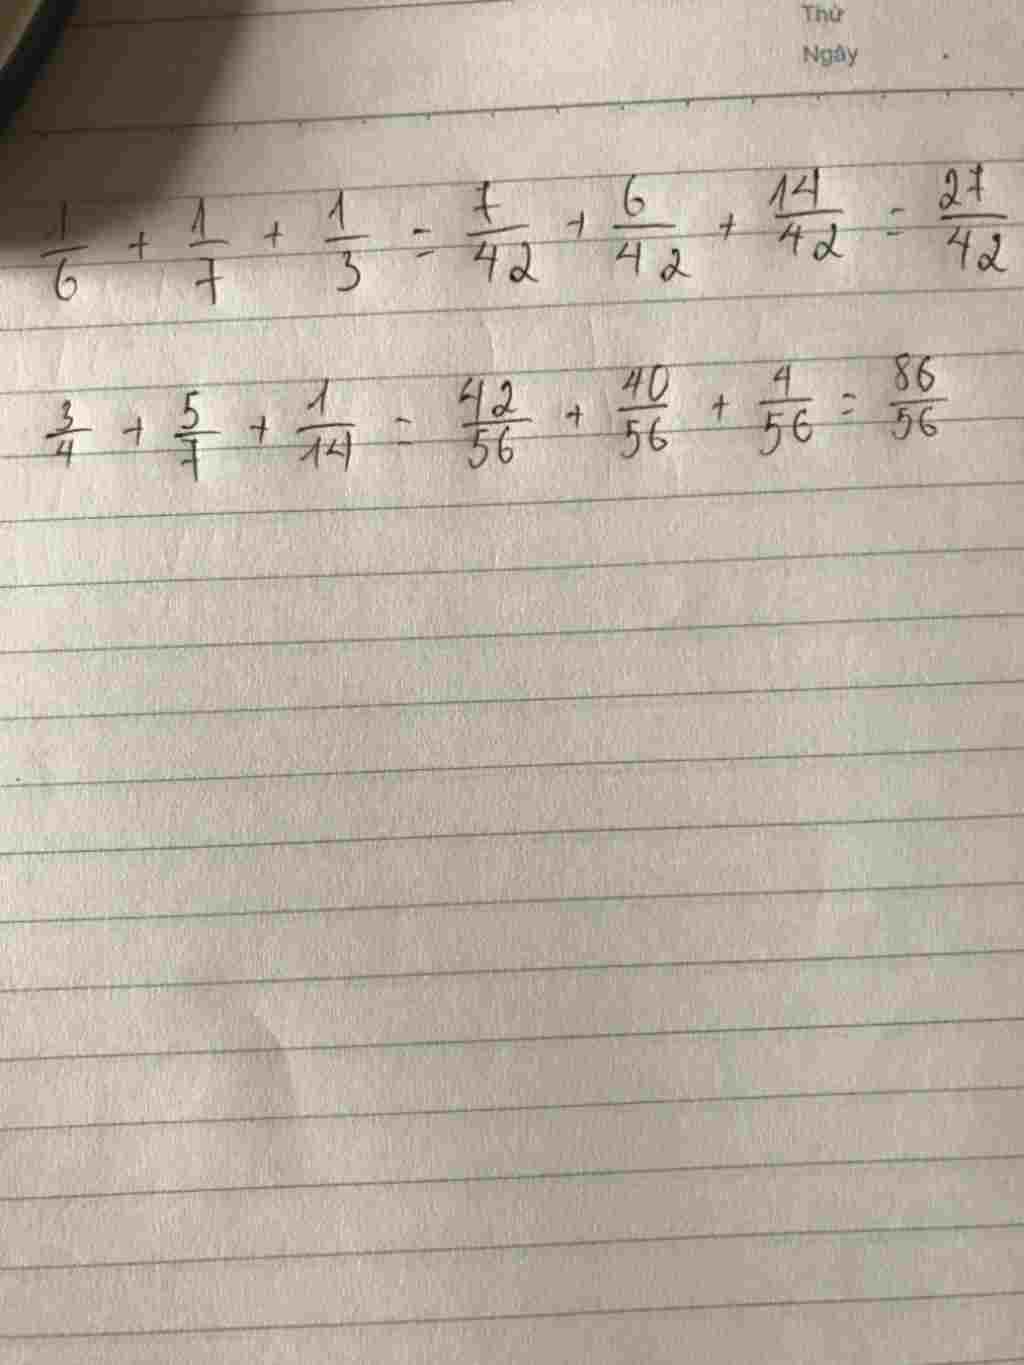 Thứ
Ngày
1/6 + 1/7 + 1/3 = 7/42 + 6/42 + 14/42 = 27/42
3/4 + 5/7 + 1/14 = 42/56 + 40/56 + 4/56 = 86/56